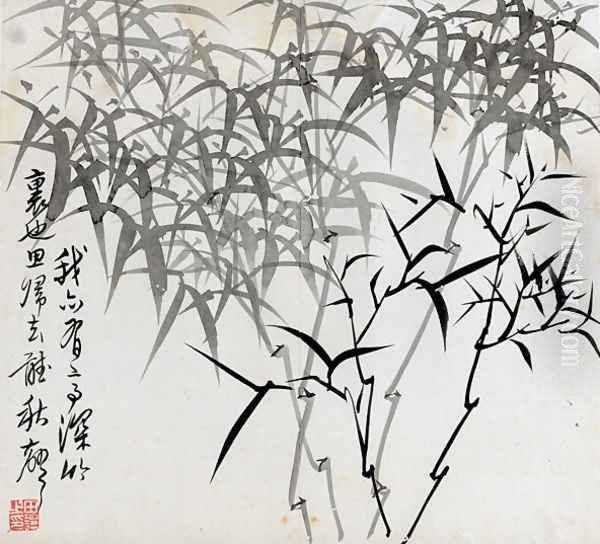 我亦有亭深竹
裏也思歸去聽秋聲
NiceArtGallery.com